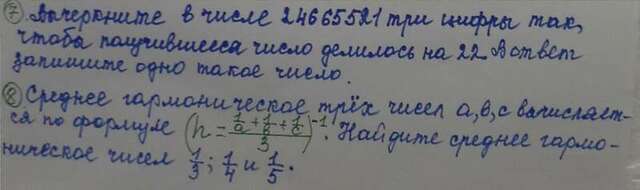 ⑦. Вычеркните в числе 24665521 три цифры так,
чтобы получившееся число делилось на 22. В ответ
запишите одно такое число.
⑧ Среднее гармоническое трёх чисел a, b, c вычисляет-
ся по формуле (h = (1/a + 1/b + 1/c)/3)^-1. Найдите среднее гармо-
ническое чисел 1/3; 1/4 и 1/5.